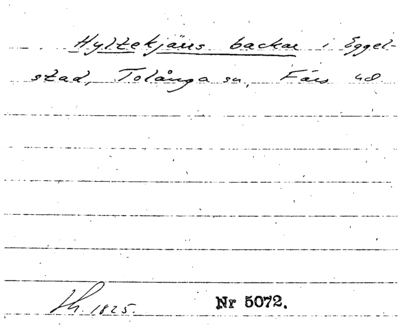 Hyltekjärrs backar i Eggel-
stad, Tolånga sn, Färs hd
Sh. 1825. Nr 5072.